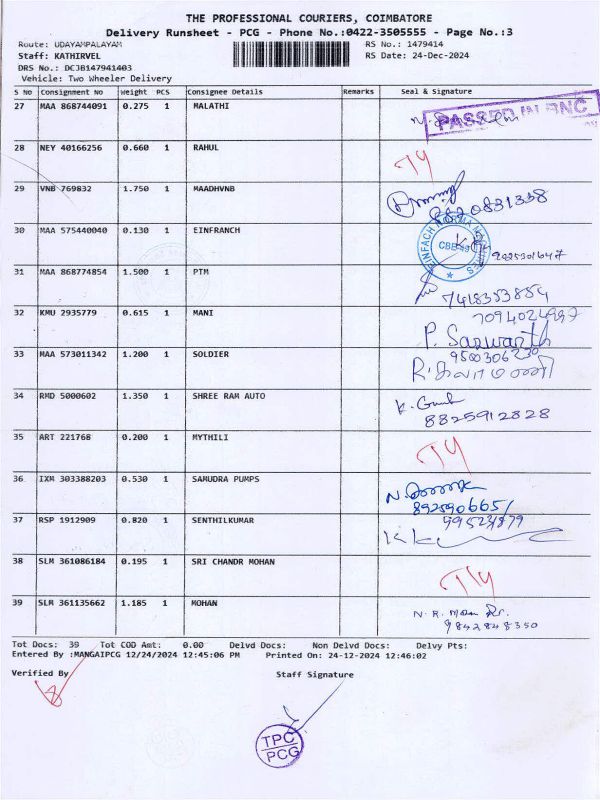 THE PROFESSIONAL COURIERS, COIMBATORE
Delivery Runsheet - PCG - Phone No.:0422-3505555 - Page No.:3
Route: UDAYAMPALAYAM RS No.: 1479414
Staff: KATHIRVEL RS Date: 24-Dec-2024
DRS No.: DCJB147941403
Vehicle: Two Wheeler Delivery
S No Consignment No Weight PCS Consignee Details Remarks Seal & Signature
27 MAA 868744091 0.275 1 MALATHI
PASSED IN BNC
28 NEY 40166256 0.660 1 RAHUL
29 VNB 769832 1.750 1 MAADHVNB
8820831338
30 MAA 575440040 0.130 1 EINFRANCH
CBE
31 MAA 868774854 1.500 1 PTM
7418353854
32 KMU 2935779 0.615 1 MANI
7094024997
P. Saswarth
33 MAA 573011342 1.200 1 SOLDIER
9500306230
34 RMD 5000602 1.350 1 SHREE RAM AUTO
8825912828
35 ART 221768 0.200 1 MYTHILI
36 IXM 303388203 0.530 1 SAMUDRA PUMPS
8925906651
37 RSP 1912909 0.820 1 SENTHILKUMAR
38 SLM 361086184 0.195 1 SRI CHANDR MOHAN
39 SLM 361135662 1.185 1 MOHAN
9842848350
Tot Docs: 39 Tot COD Amt: 0.00 Delvd Docs: Non Delvd Docs: Delvy Pts:
Entered By :MANGAIPCG 12/24/2024 12:45:06 PM Printed On: 24-12-2024 12:46:02
Verified By Staff Signature
TPC
PCG